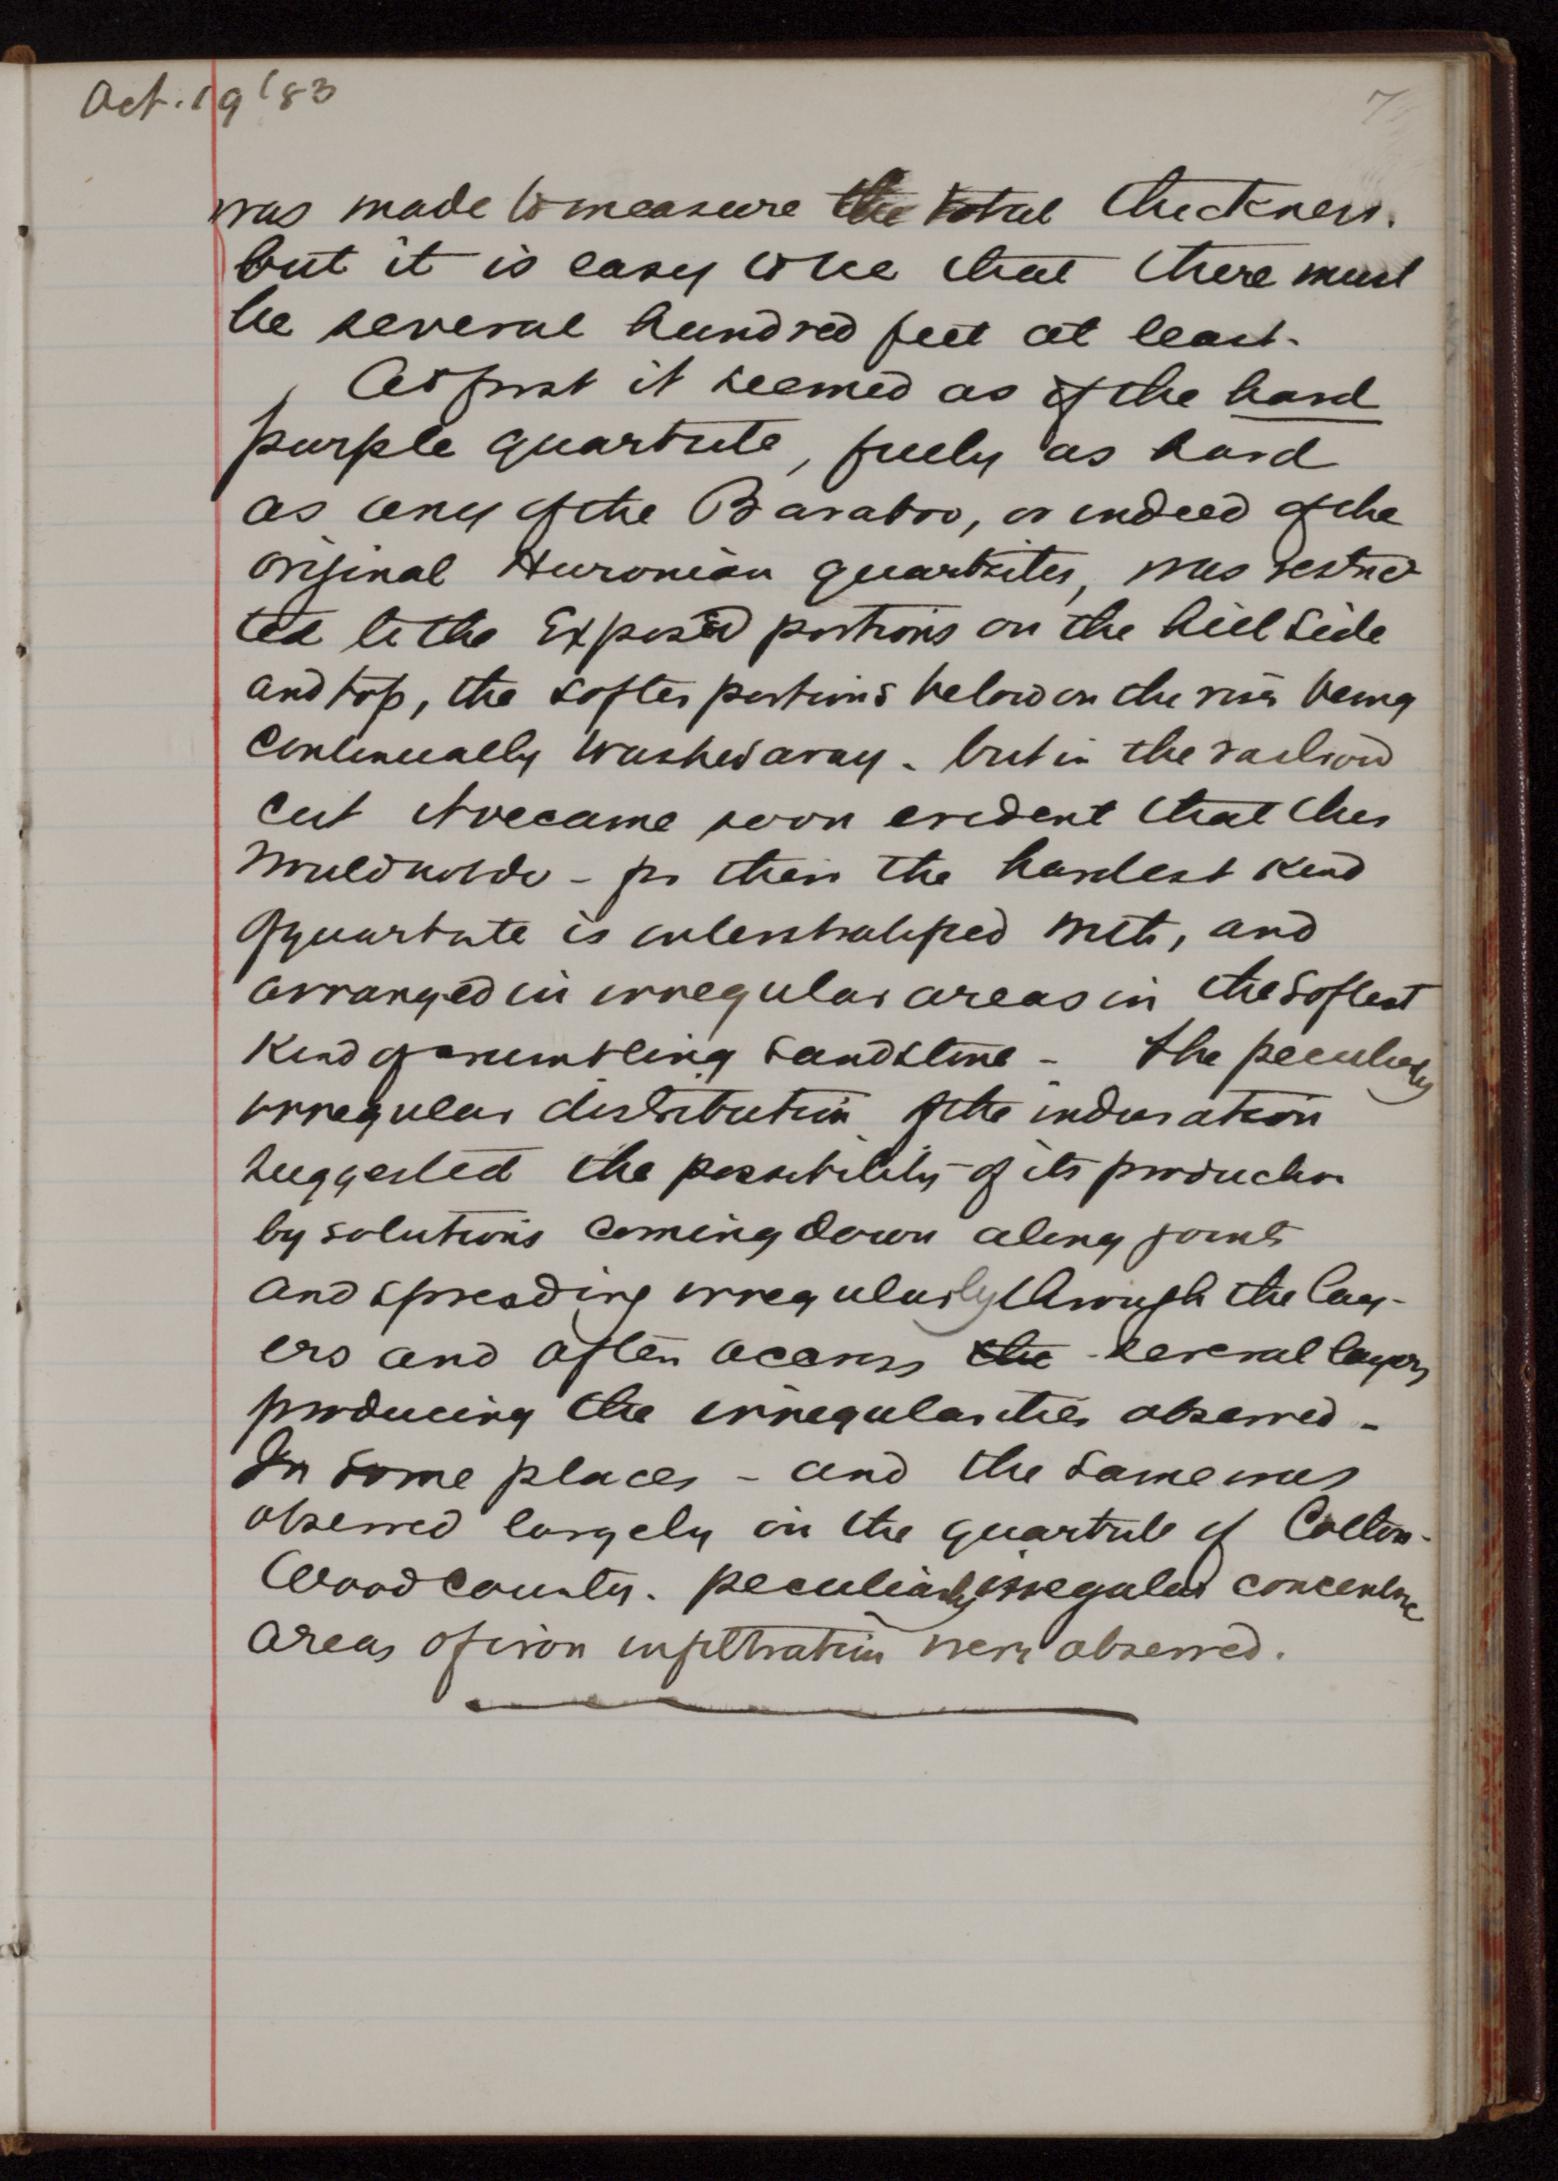 Oct. 19 '83
7
was made to measure the total thickness.
but it is easy to see that there must
be several hundred feet at least.
At first it seemed as if the hard
purple quartzite, fully as hard
as any of the Baraboo, or indeed of the
original Huronian quartzites, was restric
ted to the Exposed portions on the hill side
and top, the softer portions below on the river being
continually washed away - but in the railroad
cut it became soon evident that this
would not do - for there the hardest kind
of quartzite is interstratified with, and
arranged in irregular areas in the softest
kind of crumbling sandstone - the peculiarly
irregular distribution of the induration
suggested the possibility of its production
by solutions coming down along joints
and spreading irregularly through the lay-
ers and often across the several layers
producing the irregularities observed -
In some places - and the same was
observed largely in the quartzite of Cotton-
wood County. peculiarly irregular concentric
areas of iron infiltration were observed.